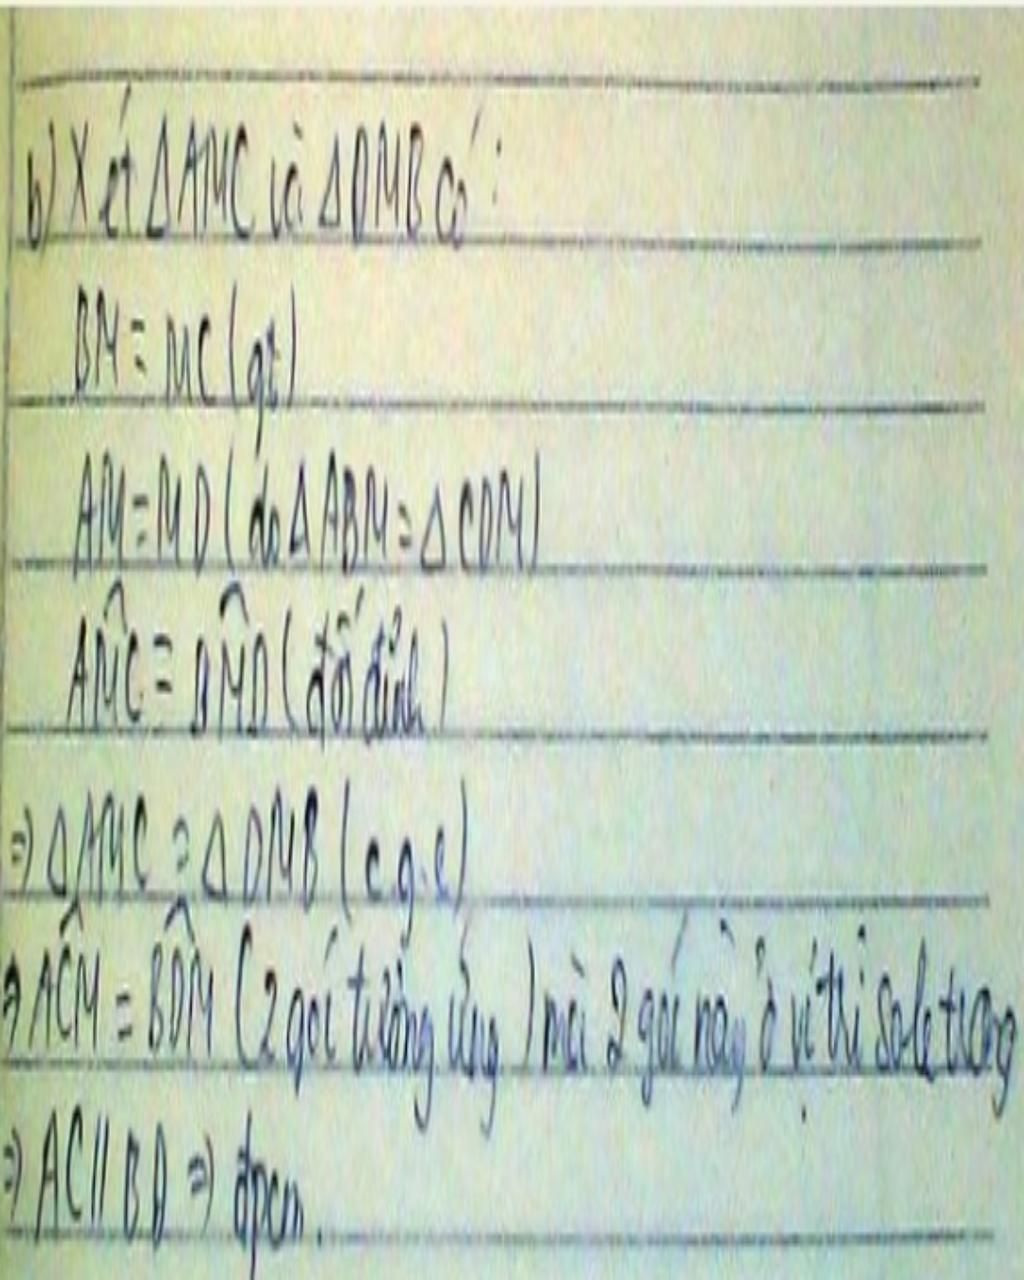 b) Xét ΔAMC và ΔDMB có:
BM = MC (gt)
AM = MD (do ΔABM = ΔCDM)
AM̂C = BM̂D (đối đỉnh)
⇒ ΔAMC = ΔDMB (c.g.c)
⇒ AĈM = BD̂M (2 goí tường ứng) mà 2 goí này ở ví trí sole trong
⇒ AC // BD ⇒ đpcm.